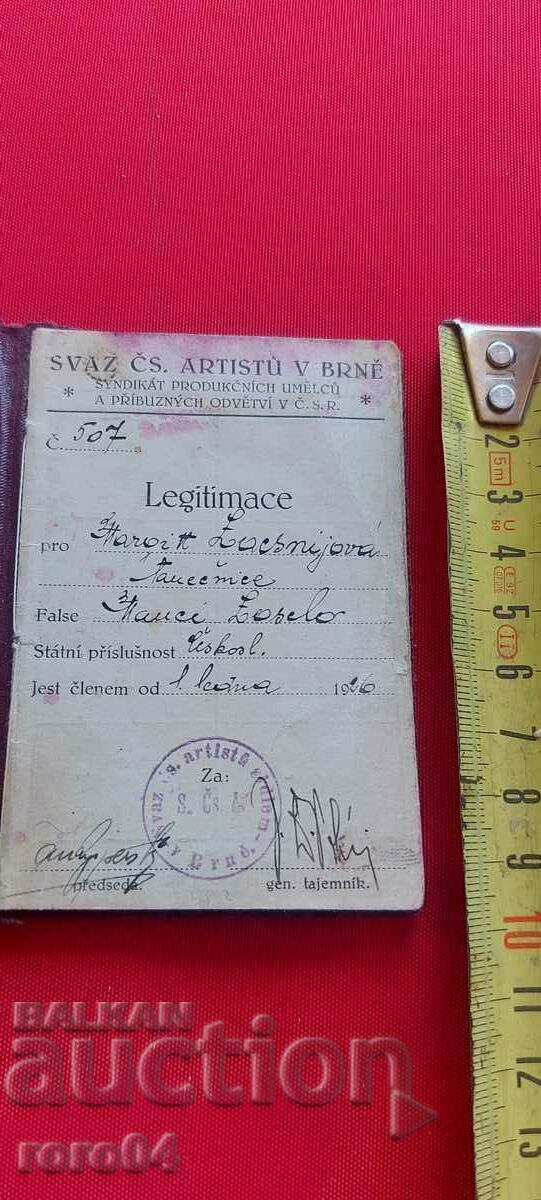 SVAZ ČS. ARTISTŮ V BRNĚ
* SYNDIKÁT PRODUKČNÍCH UMĚLCŮ *
A PŘÍBUZNÝCH ODVĚTVÍ V Č.S.R.
Č. 507
Legitimace
pro
Tanečnice
False
Státní příslušnost Českosl.
Jest členem od 1. ledna 1926
Za:
Svaz čs. artistů
S. Čs. A.
v Brně.
předseda.
gen. tajemník.
2
5m
3
U
59
4
5
II
6
7
8
9
10
11
12
13
BALKAN
auction
roro04